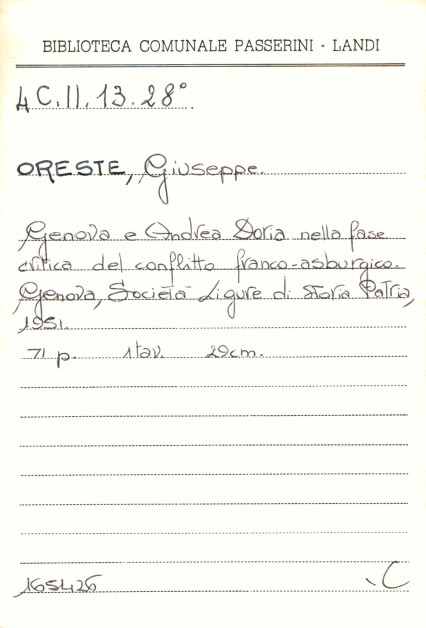 BIBLIOTECA COMUNALE PASSERINI - LANDI
4 C.II.13.28°
ORESTE, Giuseppe.
Genova e Andrea Doria nella fase
critica del conflitto franco-asburgico.
Genova, Società Ligure di Storia Patria,
1951.
71 p. 1 tav. 29cm.
165426 C